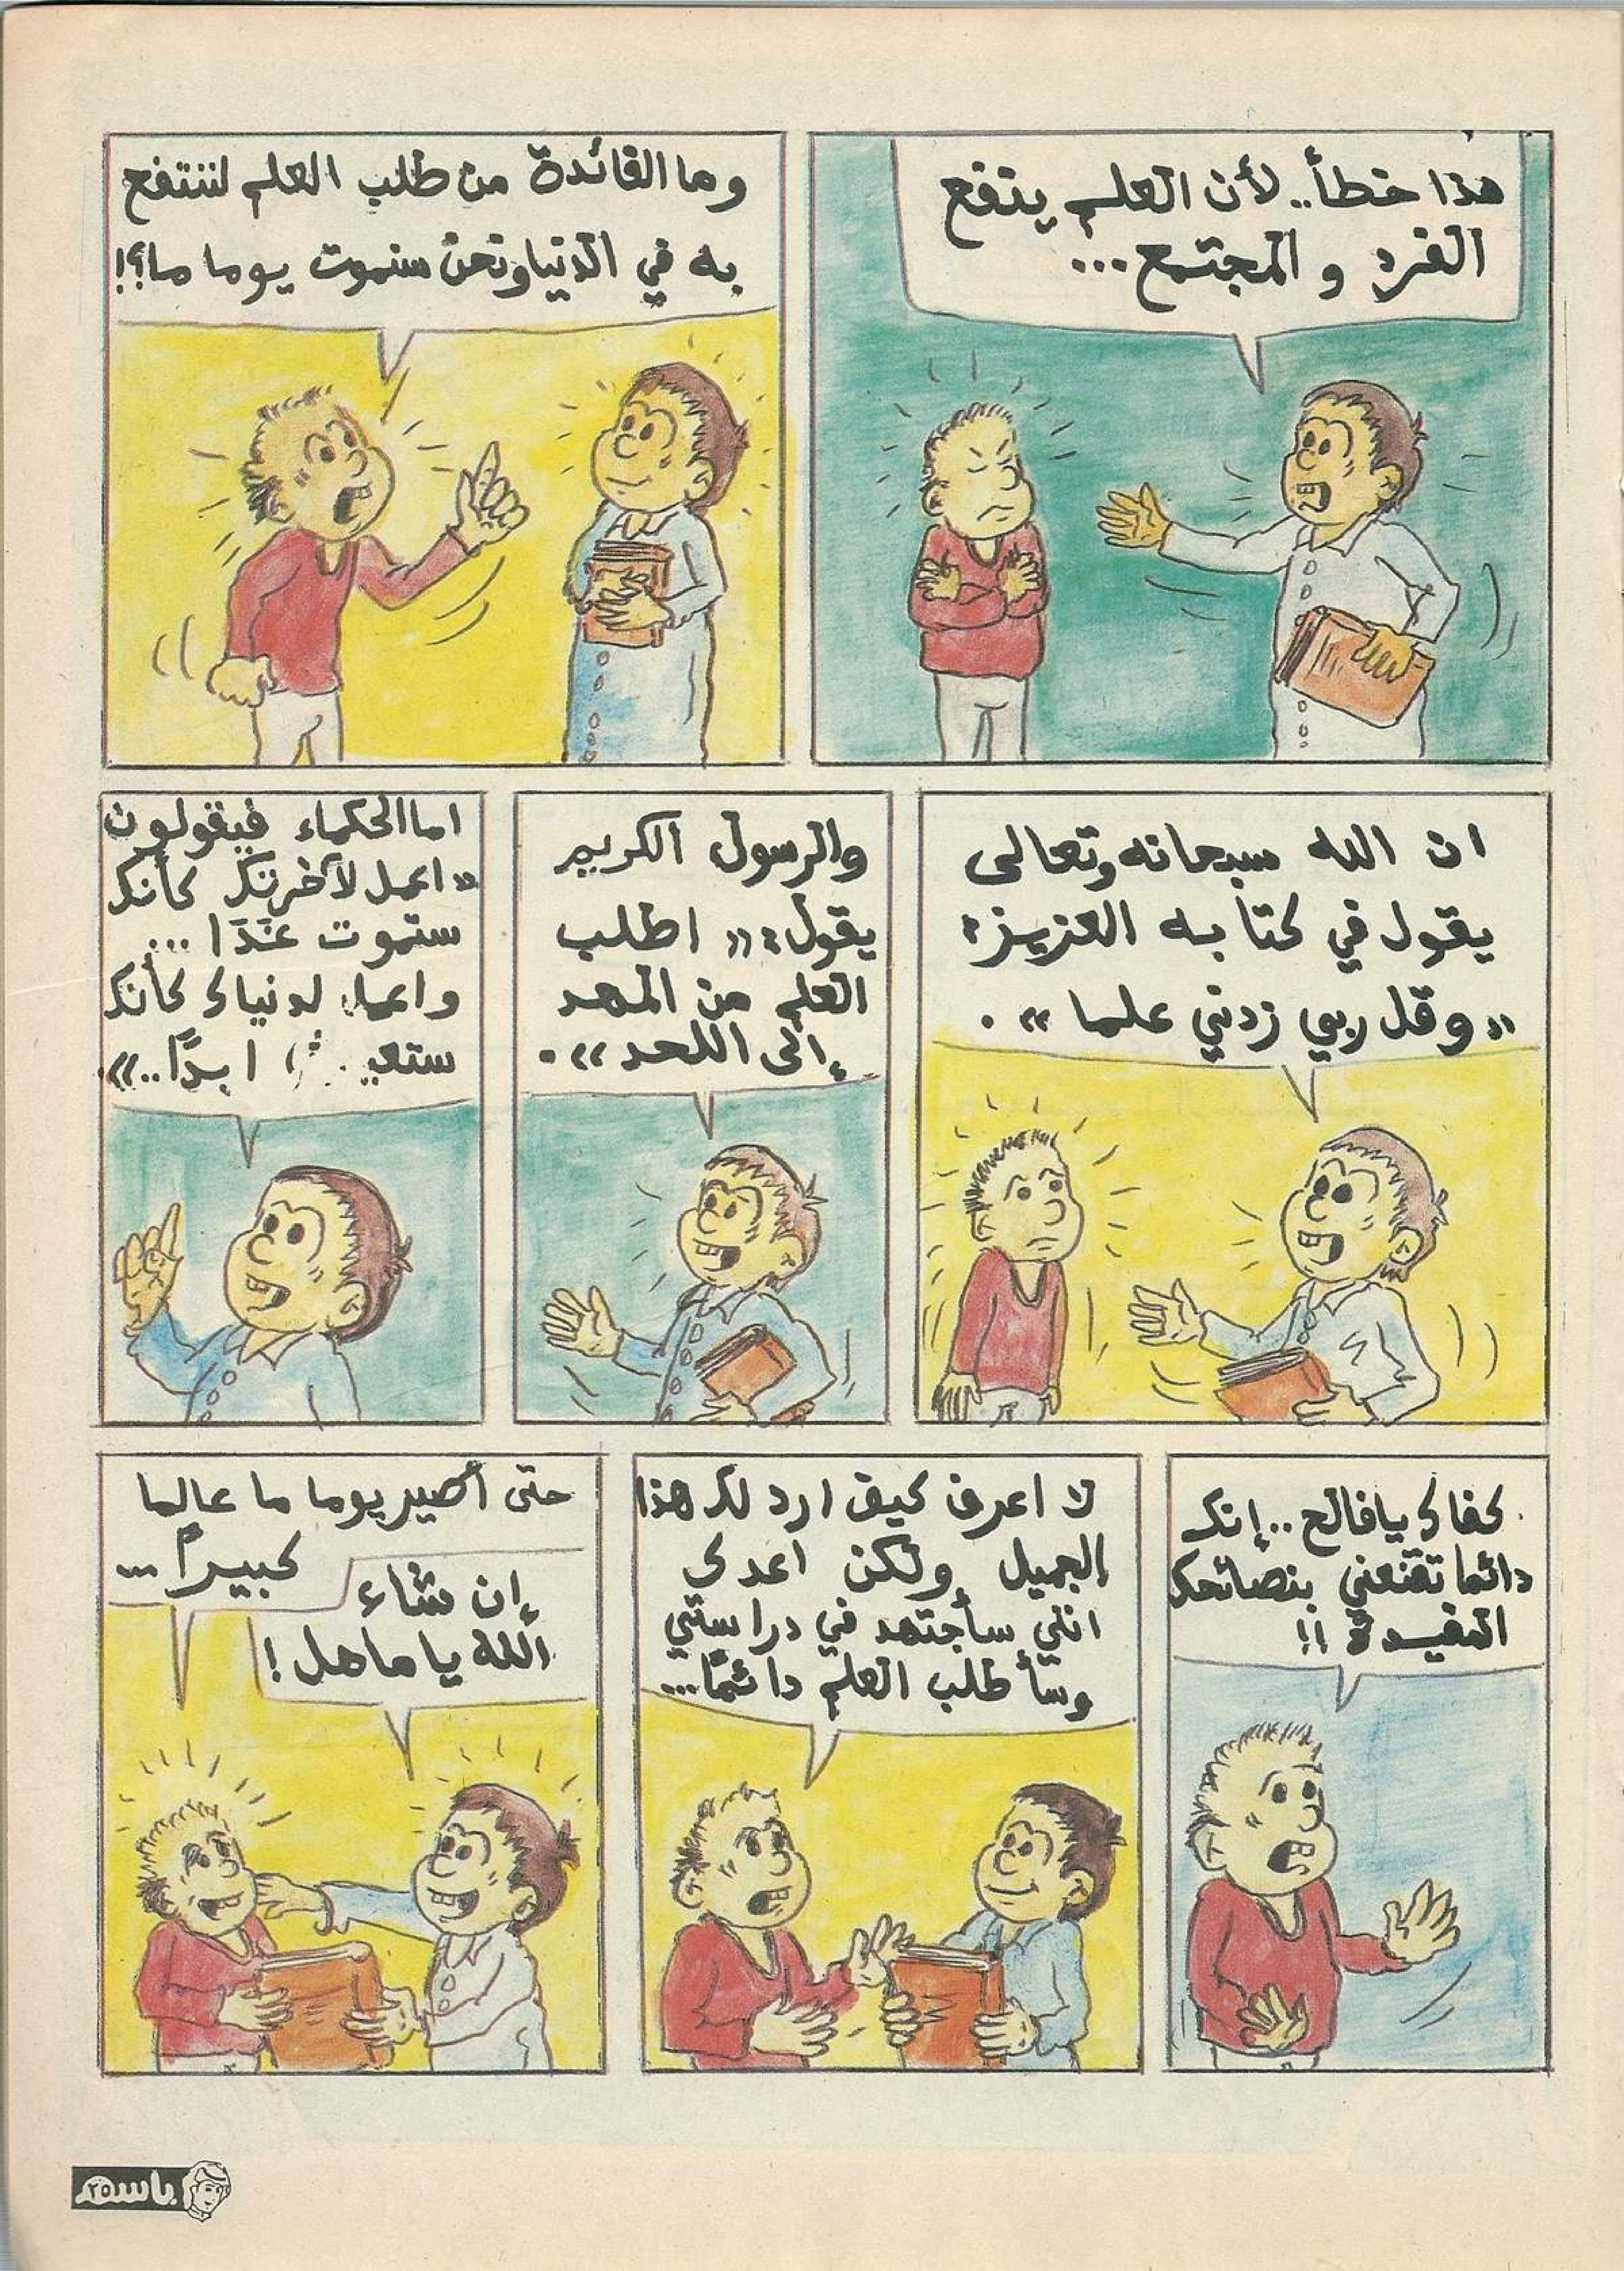 هذا خطأ.. لأن العلم ينفع
الفرد و المجتمع...
وما الفائدة من طلب العلم لننتفع
به في الدنيا ونحن سنموت يوما ما؟!
ان الله سبحانه وتعالى
يقول في كتابه العزيز:
«وقل ربي زدني علما».
والرسول الكريم
يقول: «اطلب
العلم من المهد
إلى اللحد».
اما الحكماء فيقولون
«اعمل لآخرتك كأنك
ستموت غدًا...
واعمل لدنياك كأنك
ابدًا..»
كفاك يا فالح.. إنك
دائما تقنعني بنصائحك
المفيدة!!
لا اعرف كيف ارد لك هذا
الجميل ولكن اعدك
انني سأجتهد في دراستي
وسأطلب العلم دائمًا...
حتى أصير يوما ما عالما
كبيرًا...
إن شاء
الله يا ماهل!
باسم
٢٥